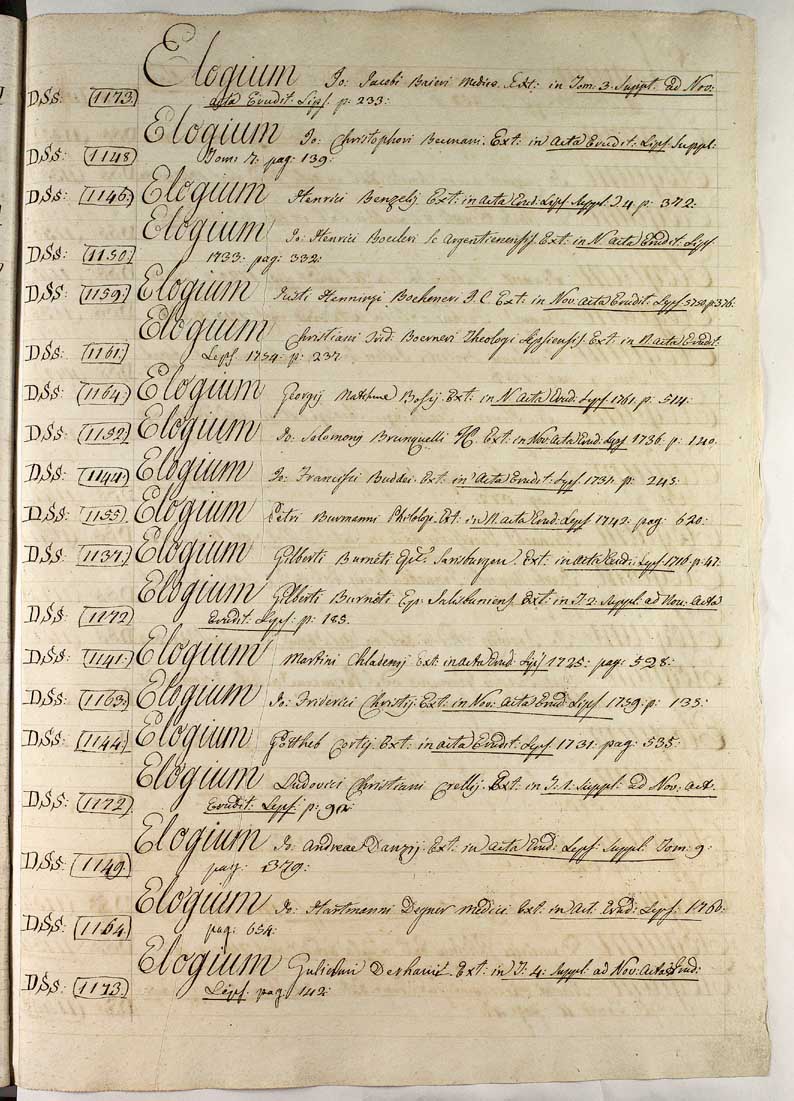 Elogium Jo: Jacobi Baieri Medico. Ext: in Tom: 3. Suppl: ad Nov:
D.S.s: 1173. acta Erudit: Lips: p: 233:
Elogium Jo: Christophori Ext: in Acta Erudit: Lips: Suppl:
D.S.s: 1148 Tomi 7. pag: 139:
D.S.s: 1146. Elogium Henrici Benzelij Ext: in Acta Erud: Lips: Suppl: T. 4. p: 372:
Elogium Jo: Henrici Boecleri Ext: in N. acta Erudit: Lips:
D.S.s: 1150. 1733: pag: 332:
D.S.s: 1159. Elogium Justi Henningi Boehmeri J. C. Ext: in Nov: acta Erudit: Lips:
Elogium Christiani Frid: Boerneri Theologi Lipsiensis. Ext: in N. acta Erudit:
D.S.s: 1161. Lips: 1754: p: 237
D.S.s: 1164. Elogium Georgij Matthiae Bosij. Ext: in N. Acta Erud: Lips: 1761. p: 514:
D.S.s: 1152. Elogium Jo: Solomony Brunquelli Ext: in Nov: Acta Erud: Lips: 1736. p: 140.
D.S.s: 1144. Elogium Jo: Francisci Buddei. Ext: in Acta Erudit: Lips: p: 243:
D.S.s: 1155. Elogium Petri Burmanni Philologi. Ext: in N. acta Erud: Lips: 1742. pag: 620:
D.S.s: 1137. Elogium Gilberti Burneti Ext: in acta Erud: Lips: 1716. p: 47:
Elogium Gilberti Burneti Ep: Salisburiens: Ext: in T. 2. Suppl: ad Nov: Acta
D.S.s: 1172 Erudit: Lips: p: 185.
D.S.s: 1141. Elogium Martini Chladenij Ext: in acta Erud: Lips: 1725: pag: 528:
D.S.s: 1163. Elogium Jo: Friderici Christij. Ext: in Nov: Acta Erud: Lips: 1759: p: 135:
D.S.s: 1144. Elogium Gottlieb Cortij. Ext: in acta Erudit: Lips: 1731: pag: 535:
Elogium Ludovici Christiani Crellij. Ext: in T. 1. Suppl: ad Nov: Act.
D.S.s: 1172. Erudit: Lips: p: 90:
Elogium Jo: Andreae Danzij. Ext: in Acta Erud: Lips: Suppl: Tom: 9:
D.S.s: 1149. pag: 379:
Elogium Jo: Hartmanni Degner Medici Ext: in Act: Erud: Lips: 1760:
D.S.s: 1164. pag: 654:
Elogium Gulielmi Derhami. Ext: in T: 4: Suppl: ad Nov: Acta Erud:
D.S.s: 1173. Lips: pag: 142: